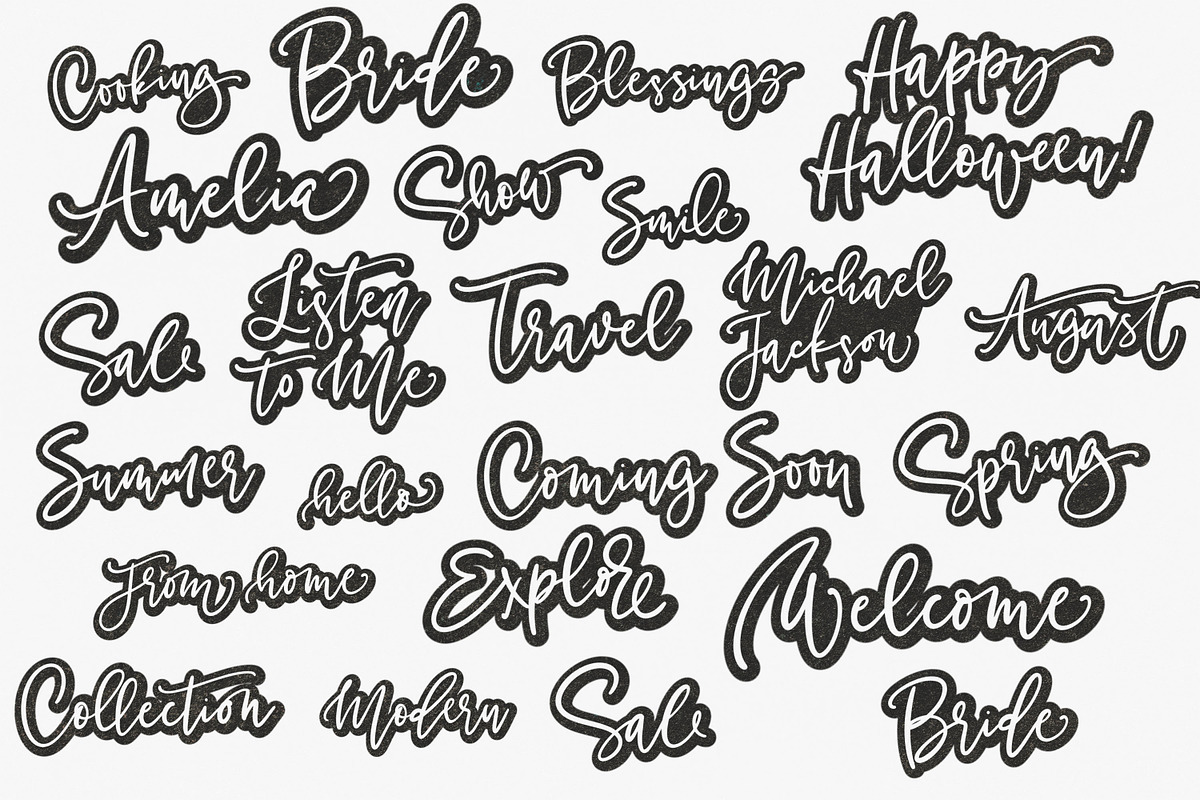 Cooking
Bride
Blessings
Happy
Halloween!
Amelia
Show
Smile
Sale
Listen
to Me
Travel
Michael
Jackson
August
Summer
hello
Coming Soon
Spring
From home
Explore
Welcome
Collection
Modern
Sale
Bride